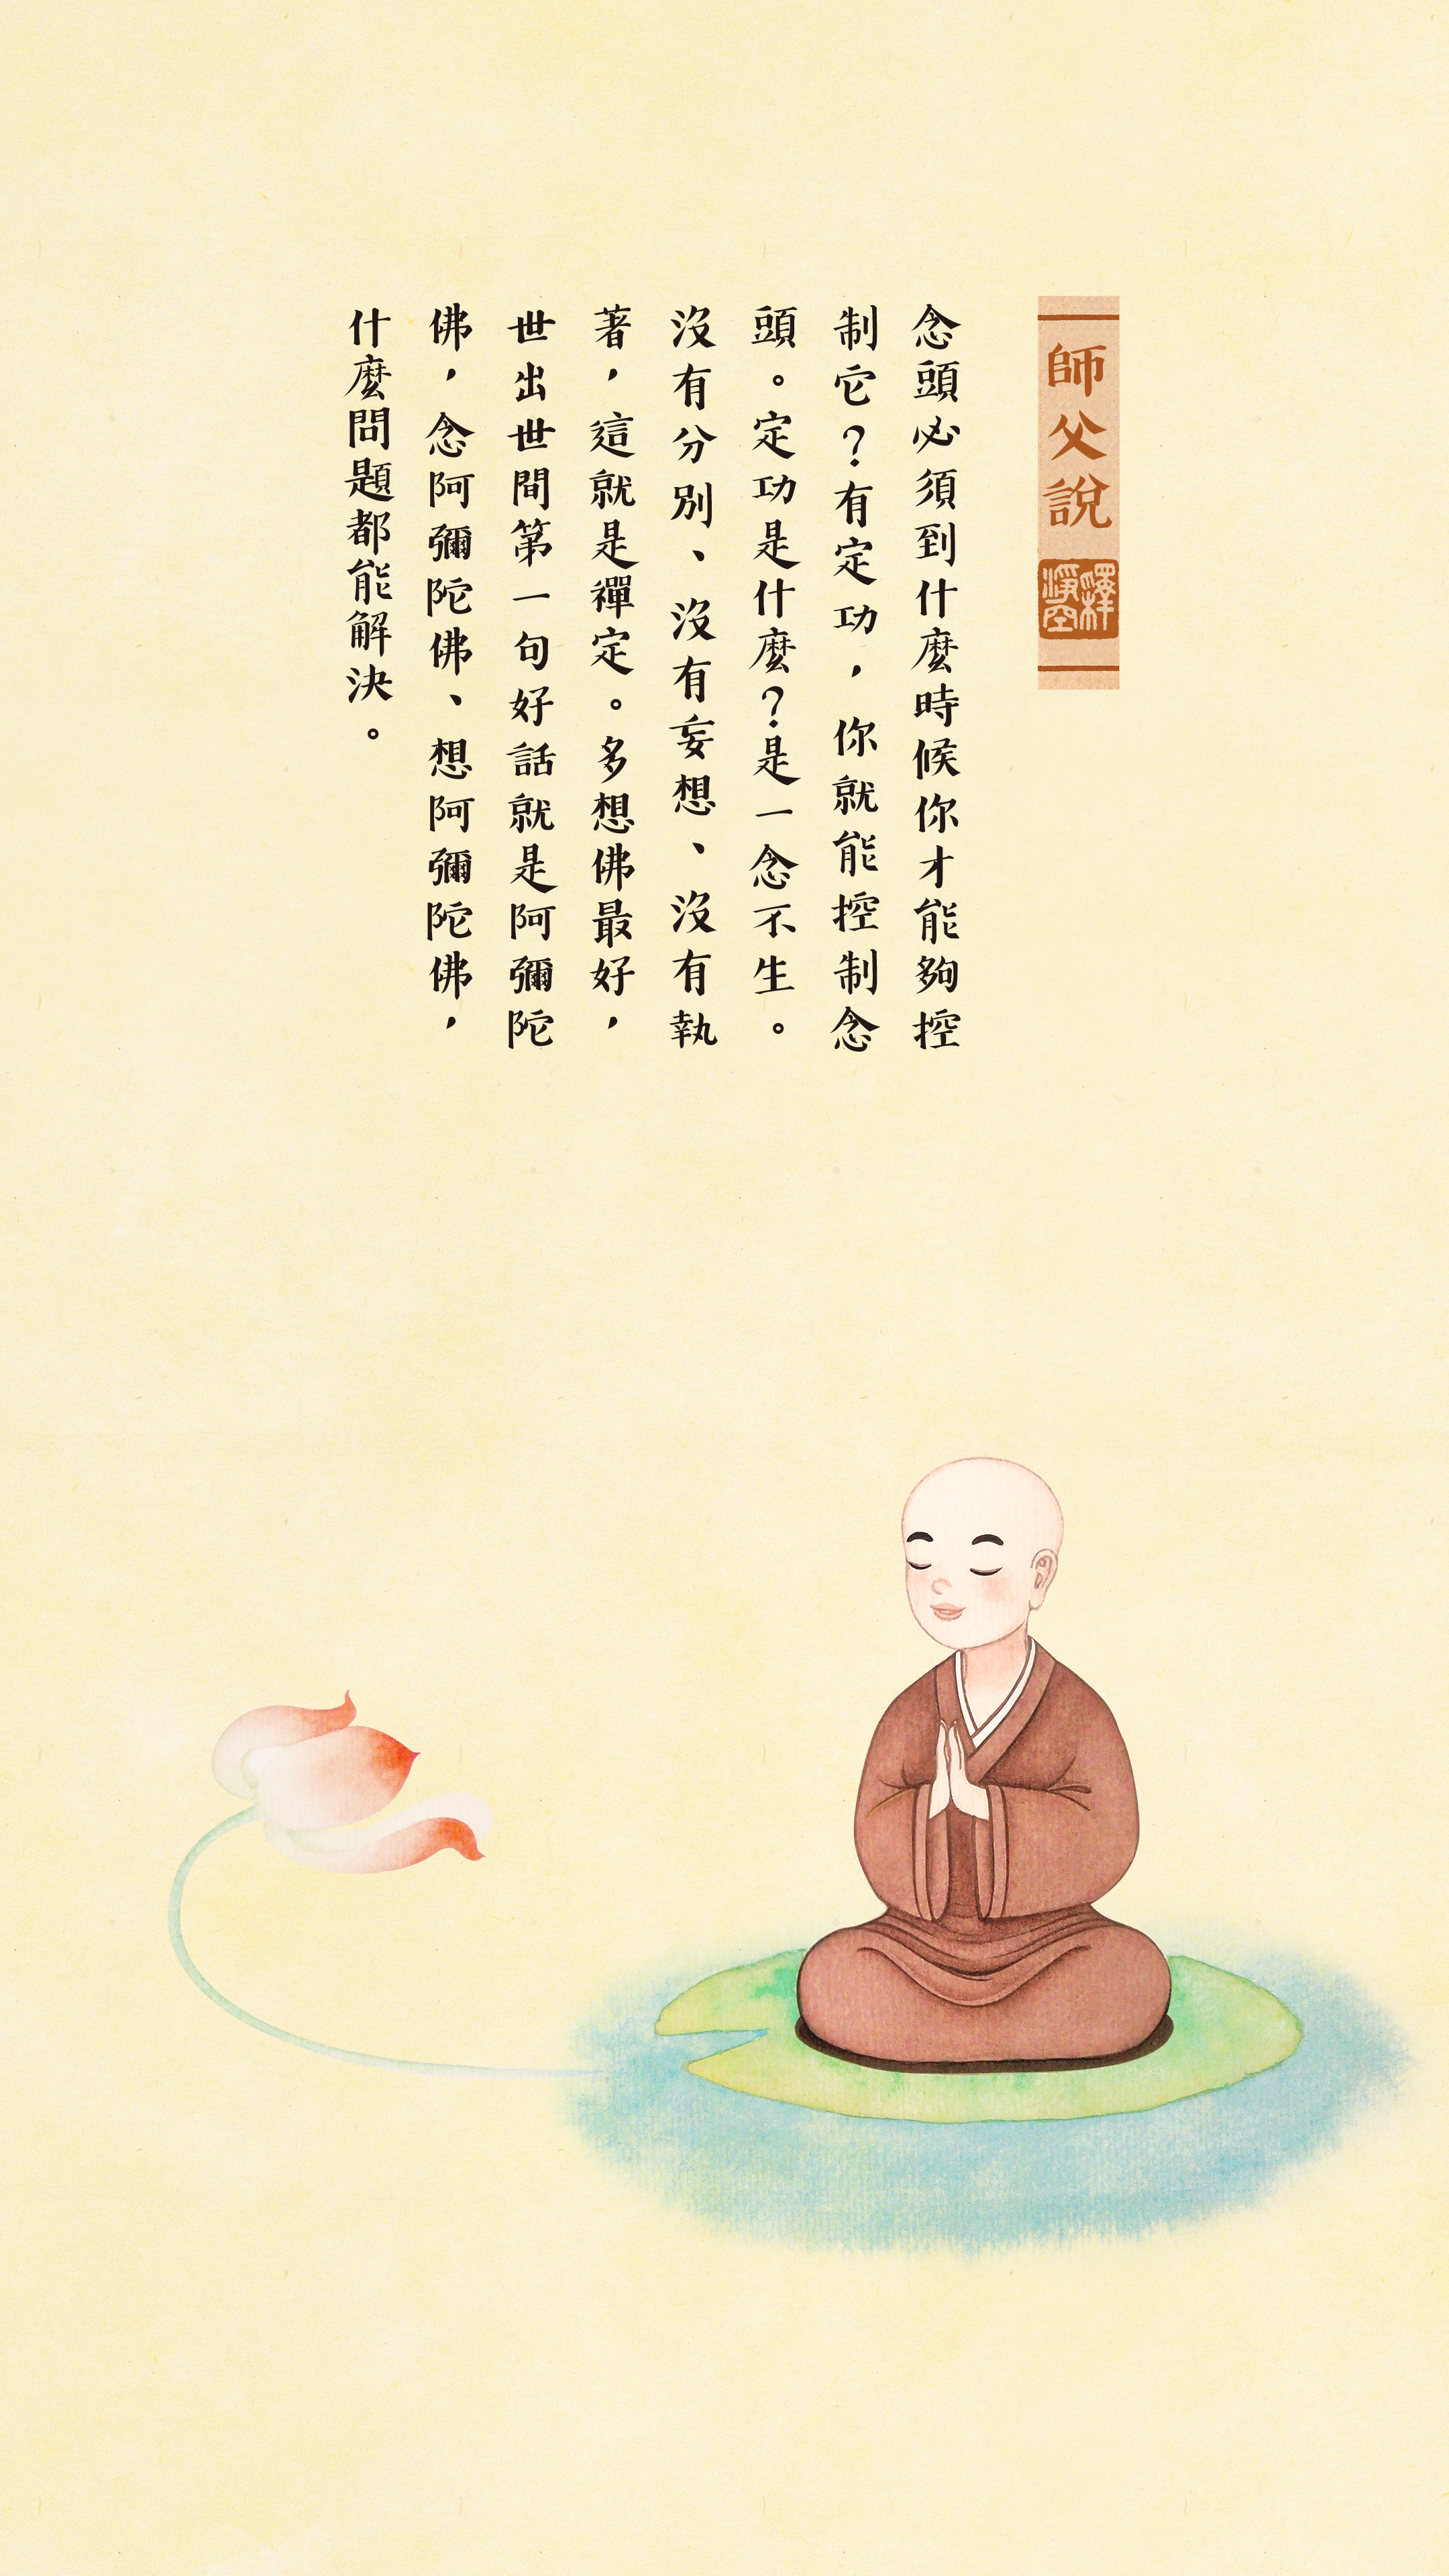 師父說
釋淨空
念頭必須到什麼時候你才能夠控
制它？有定功，你就能控制念
頭。定功是什麼？是一念不生。
沒有分別、沒有妄想、沒有執
著，這就是禪定。多想佛最好，
世出世間第一句好話就是阿彌陀
佛，念阿彌陀佛、想阿彌陀佛，
什麼問題都能解決。